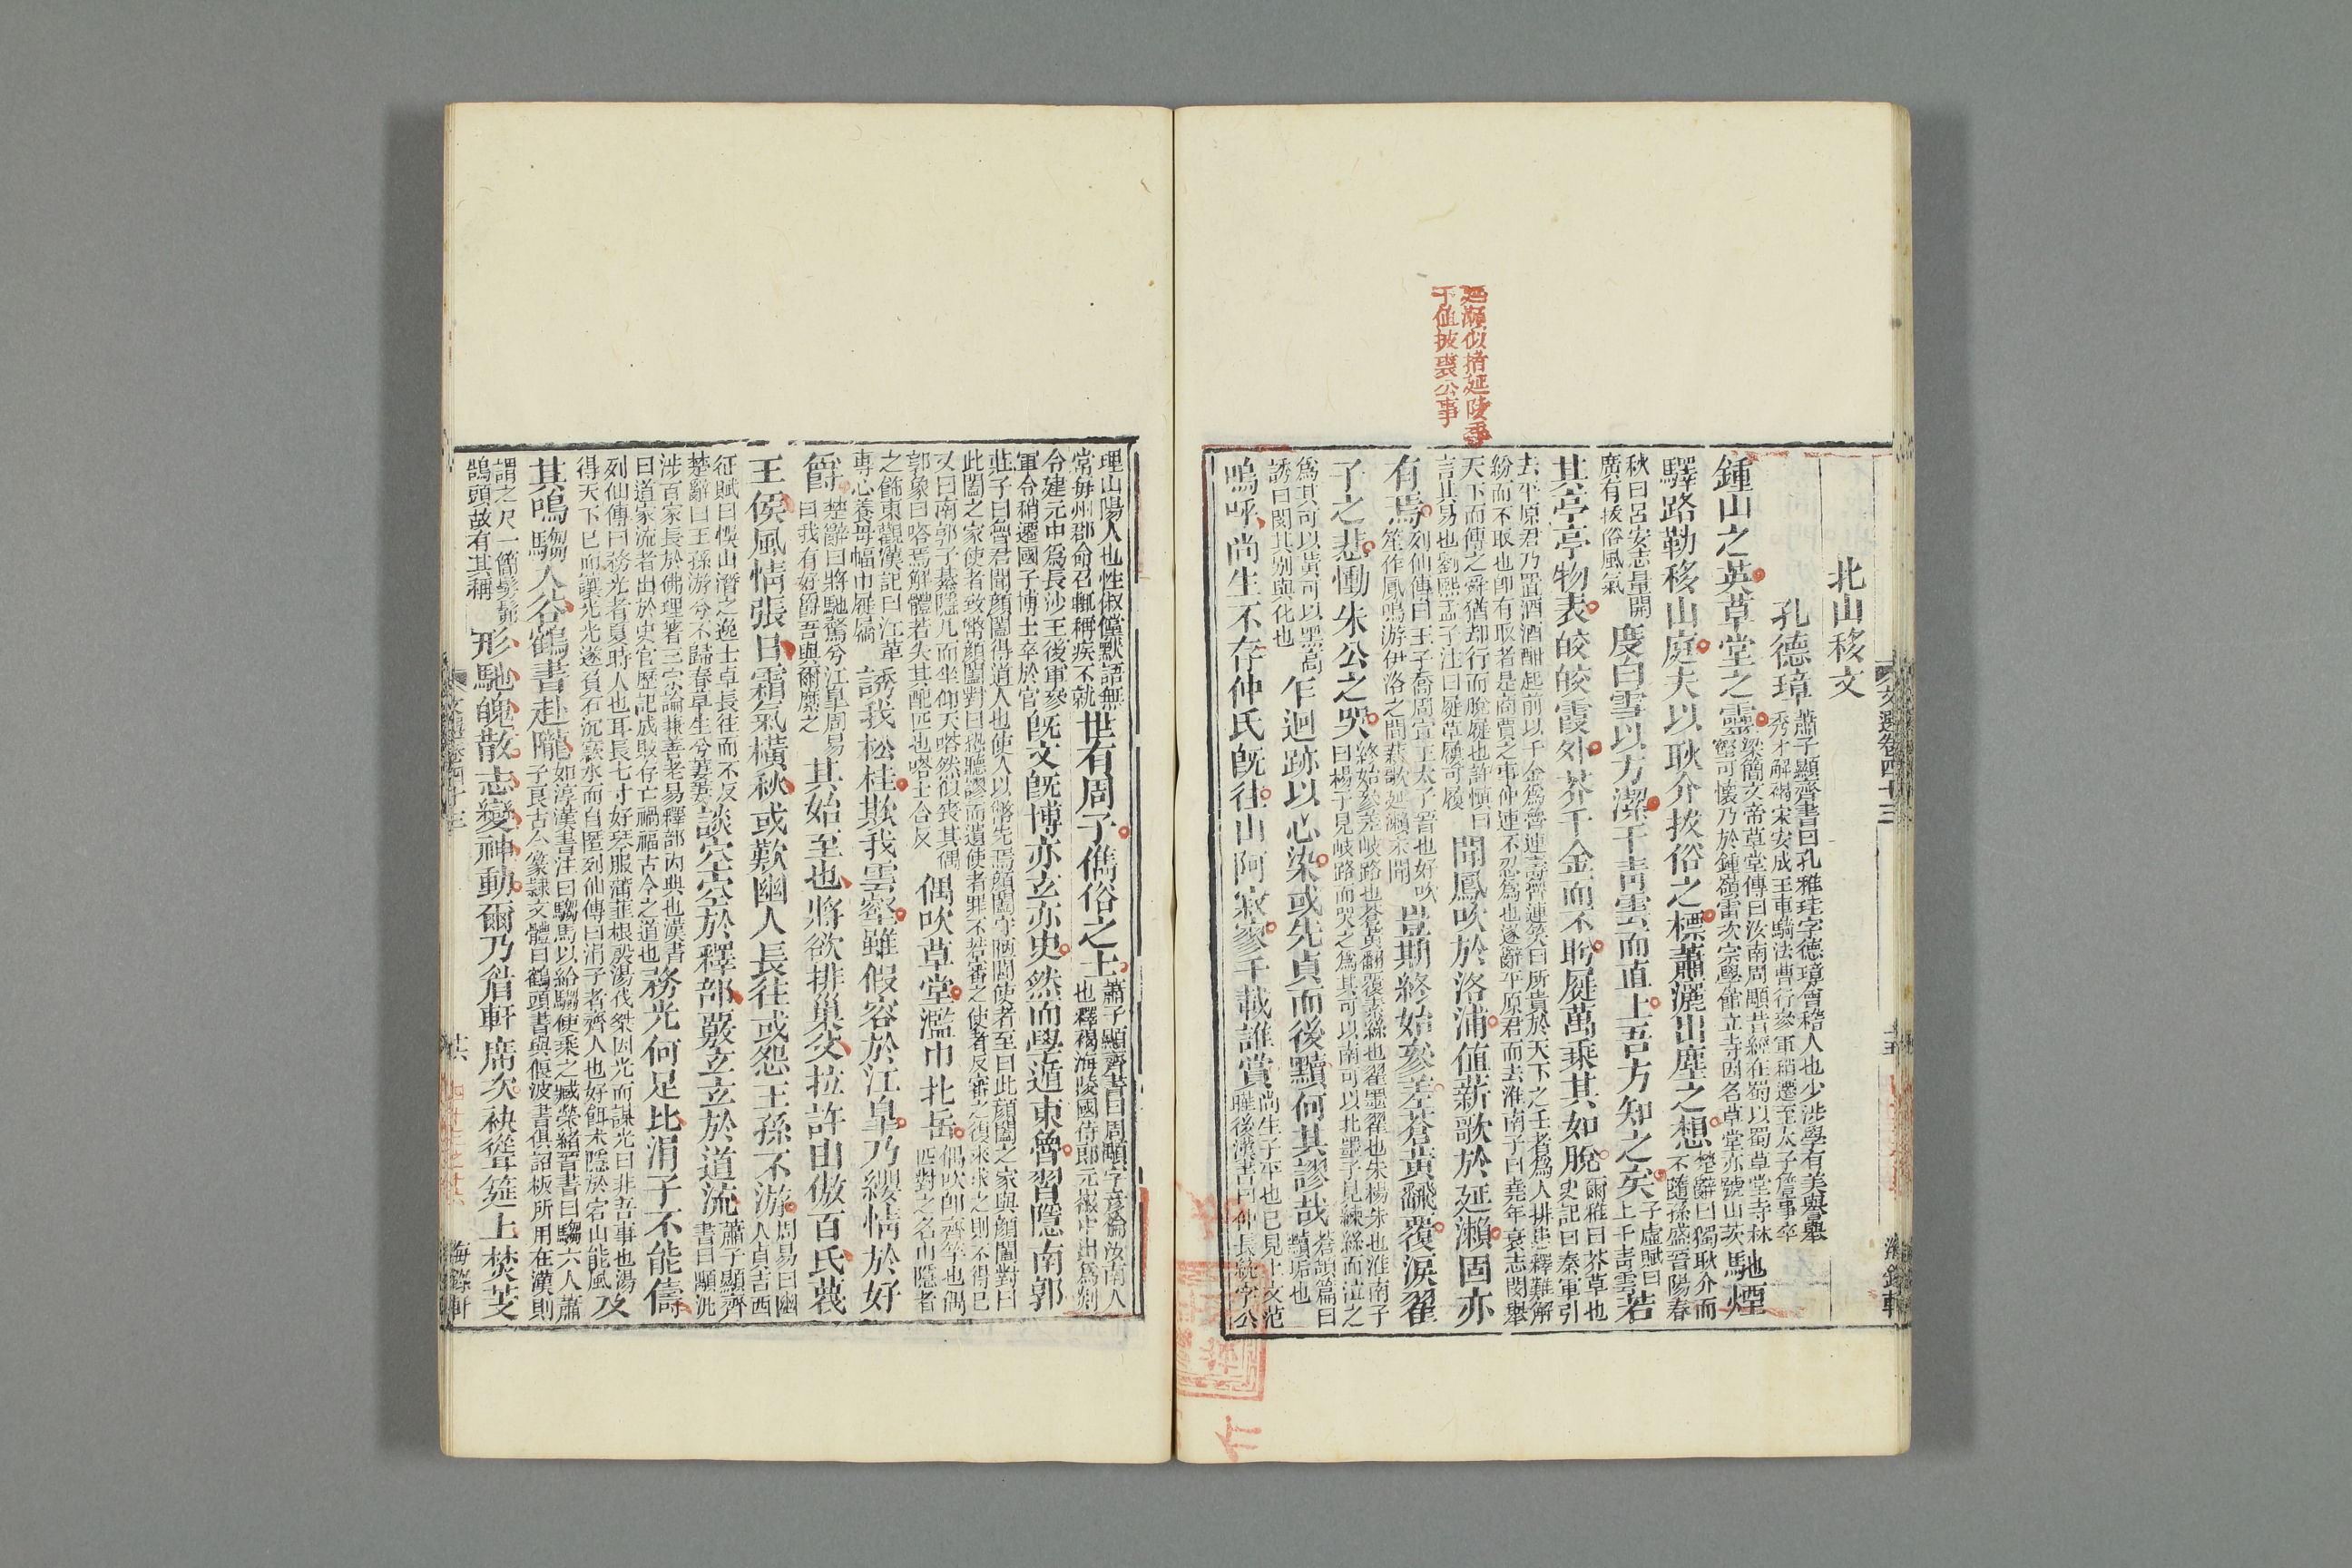 文選卷四十三
海錄軒
北山移文
孔德璋蕭子顯齊書曰孔雅珪字德璋會稽人也少涉學有美譽舉
秀才解褐宋安成王車騎法曹行參軍稍遷至太子詹事卒
鍾山之英草堂之靈梁簡文帝草堂傳曰汝南周顒昔經在蜀以蜀草堂寺林
壑可懷乃於鍾嶺雷次宗學館立寺因名草堂亦號山茨馳煙
驛路勒移山庭夫以耿介拔俗之標蕭灑出塵之想楚辭曰獨耿介而
不隨孫盛晉陽春
秋曰呂安志量開
廣有拔俗風氣度白雪以方潔干青雲而直上吾方知之矣子虛賦曰
上干青雲若
其亭亭物表皎皎霞外芥千金而不眄屣萬乘其如脫爾雅曰芥草也
史記曰秦軍引
去平原君乃置酒酒酣起前以千金為魯連壽魯連笑曰所貴於天下之士者為人排患釋難解
紛而不取也卽有取者是商賈之事仲連不忍為也遂辭平原君而去淮南子曰堯年衰志閔舉
天下而傳之舜猶却行而脫屣也許慎曰
言其易也劉熙孟子注曰屣草屨可履聞鳳吹於洛浦值薪歌於延瀨固亦
有焉列仙傳曰王子喬周宣王太子晉也好吹
笙作鳳鳴游伊洛之間薪歌延瀨未聞豈期終始參差蒼黃翻覆淚翟
子之悲慟朱公之哭終始參差岐路也蒼黃翻覆素絲也翟墨翟也朱楊朱也淮南子
曰楊子見岐路而哭之為其可以南可以北墨子見練絲而泣之
為其可以黃可以黑高
誘曰閔其別與化也乍迴跡以心染或先貞而後黷何其謬哉蒼頡篇曰
黷垢也
嗚呼尚生不存仲氏旣往山阿寂寥千載誰賞尚生子平也已見上文范
曄後漢書曰仲長統字公
延瀨似指延陵季
子值披裘公事
理山陽人也性俶儻默語無
常每州郡命召輒稱疾不就世有周子儁俗之士蕭子顯齊書曰周顒字彥倫汝南人
也釋褐海陵國侍郎元徽中出為剡
令建元中為長沙王後軍參
軍令稍遷國子博士卒於官旣文旣博亦玄亦史然而學遁東魯習隱南郭
莊子曰魯君聞顏闔得道人也使人以幣先焉顏闔守陋閭使者至曰此顏闔之家與顏闔對曰
此闔之家使者致幣顏闔對曰恐聽謬而遺使者罪不若審之使者反審之復來求之則不得已
又曰南郭子綦隱几而坐仰天嗒然似喪其偶
郭象曰嗒焉解體若失其配匹也嗒土合反偶吹草堂濫巾北岳偶吹卽齊竽也偶
匹對之名巾隱者
之飾東觀漢記曰江革
專心養母幅巾屣屩誘我松桂欺我雲壑雖假容於江臯乃纓情於好
爵楚辭曰將馳騖兮江臯周易
曰我有好爵吾與爾縻之其始至也將欲排巢父拉許由傲百氏蔑
王侯風情張日霜氣橫秋或歎幽人長往或怨王孫不游周易曰幽
人貞吉西
征賦曰悞山潛之逸士卓長往而不反
楚辭曰王孫游兮不歸春草生兮萋萋談空空於釋部覈玄玄於道流蕭子顯齊
書曰顒汎
涉百家長於佛理著三宗論兼善老易釋部內典也漢書
曰道家流者出於史官歷記成敗存亡禍福古今之道也務光何足比涓子不能儔
列仙傳曰務光者夏時人也耳長七寸好琴服蒲韮根殷湯伐桀因光而謀光曰非吾事也湯
得天下已而讓光光遂負石沉窾水而自匿列仙傳曰涓子者齊人也好餌朮隱於宕山能風及
其鳴騶入谷鶴書赴隴如淳漢書注曰騶馬以給騶使乘之臧榮緒晉書曰騶六人蕭
子良古今篆隸文體曰鶴頭書與偃波書俱詔板所用在漢則
謂之尺一簡髣髴
鵠頭故有其稱形馳魄散志變神動爾乃眉軒席次袂聳筵上焚芰
文選卷四十三
廿六
海錄軒